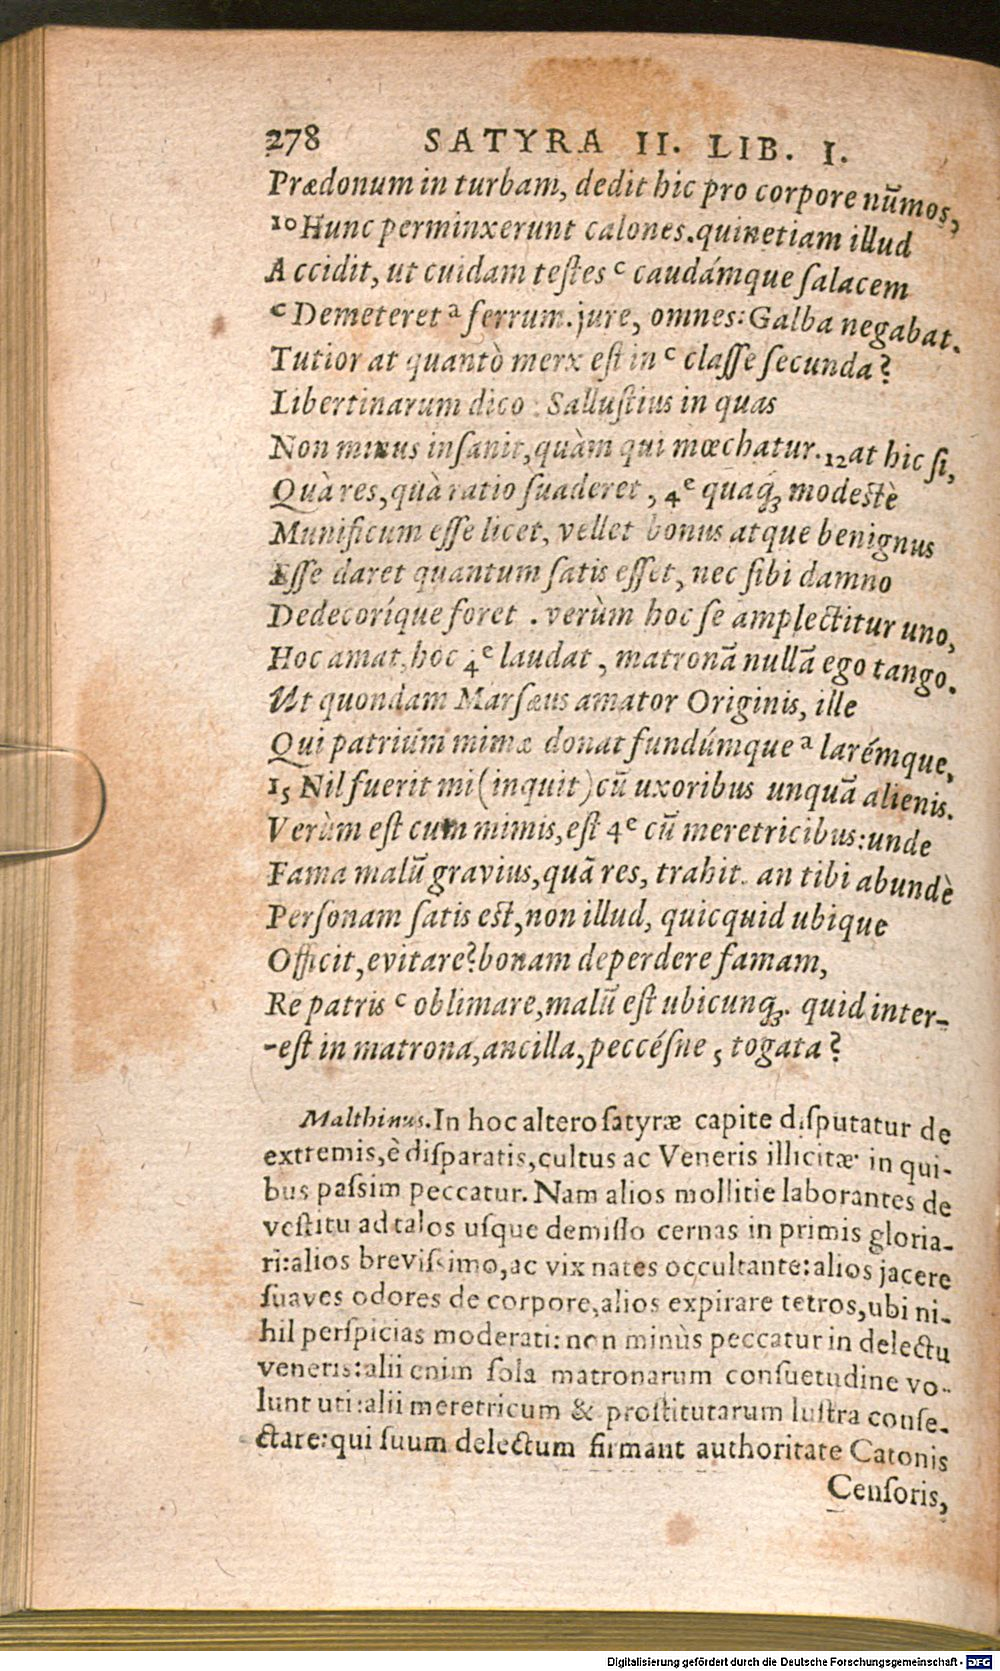 278 SATYRA II. LIB. I.
Prædonum in turbam, dedit hic pro corpore nūmos,
10 Hunc perminxerunt calones. quinetiam illud
Accidit, ut cuidam testes c caudámque salacem
c Demeteret a ferrum. jure, omnes: Galba negabat.
Tutior at quantò merx est in c classe secunda?
Libertinarum dico: Sallustius in quas
Non minus insanit, quàm qui mœchatur. 12 at hic si,
Quà res, quà ratio suaderet, 4e quaq; modestè
Munificum esse licet, vellet bonus atque benignus
Esse daret quantum satis esset, nec sibi damno
Dedecoríque foret. verùm hoc se amplectitur uno,
Hoc amat, hoc 4e laudat, matronā nullā ego tango.
Ut quondam Marsæus amator Originis, ille
Qui patrium mimæ donat fundúmque a larémque,
15 Nil fuerit mi (inquit) cū uxoribus unquā alienis.
Verùm est cum mimis, est 4e cū meretricibus: unde
Fama malū gravius, quā res, trahit. an tibi abundè
Personam satis est, non illud, quicquid ubique
Officit, evitare? bonam deperdere famam,
Re patris c oblimare, malū est ubicunq;. quid inter-
-est in matrona, ancilla, peccésne 5 togata?
Malthinus. In hoc altero satyræ capite disputatur de
extremis, è disparatis, cultus ac Veneris illicitæ in qui-
bus passim peccatur. Nam alios mollitie laborantes de
vestitu ad talos usque demisso cernas in primis gloria-
ri: alios brevissimo, ac vix nates occultante: alios jacere
suaves odores de corpore, alios expirare tetros, ubi ni-
hil perspicias moderati: non minùs peccatur in delectu
veneris: alii enim sola matronarum consuetudine vo-
lunt uti: alii meretricum & prostitutarum lustra conse-
ctare: qui suum delectum firmant authoritate Catonis
Censoris,
Digitalisierung gefördert durch die Deutsche Forschungsgemeinschaft - DFG